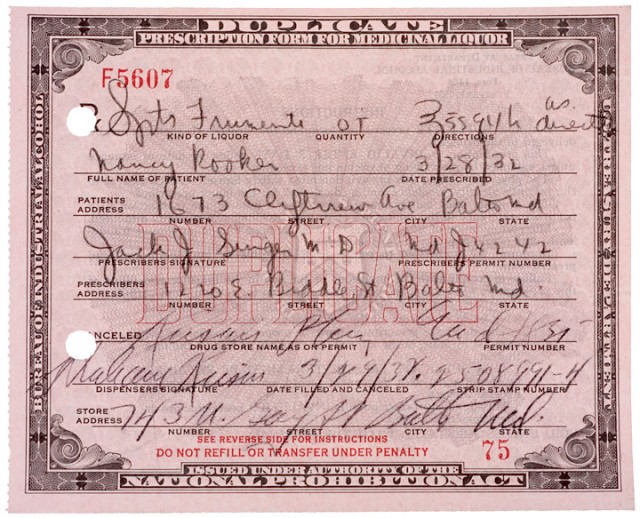 DUPLICATE
PRESCRIPTION FORM FOR MEDICINAL LIQUOR
F5607
BUREAU OF INDUSTRIAL ALCOHOL
Spts Frumenti OT as directed
KIND OF LIQUOR QUANTITY DIRECTIONS
Nancy Rooker 3/28/32
FULL NAME OF PATIENT DATE PRESCRIBED
PATIENTS ADDRESS 1673 Cliftview Ave Balto Md
NUMBER STREET CITY STATE
Jack J Singer M D Md J4242
PRESCRIBERS SIGNATURE PRESCRIBER'S PERMIT NUMBER
DUPLICATE
PRESCRIBERS ADDRESS 1220 E. Biddle St Balto Md.
NUMBER STREET CITY STATE
CANCELED
DRUG STORE NAME AS ON PERMIT PERMIT NUMBER
3/29/32 2508991-4
DISPENSERS SIGNATURE DATE FILED AND CANCELED STRIP STAMP NUMBER
STORE ADDRESS 743 N. St Balto Md.
NUMBER STREET CITY STATE
SEE REVERSE SIDE FOR INSTRUCTIONS
DO NOT REFILL OR TRANSFER UNDER PENALTY 75
ISSUED UNDER AUTHORITY OF THE
NATIONAL PROHIBITION ACT